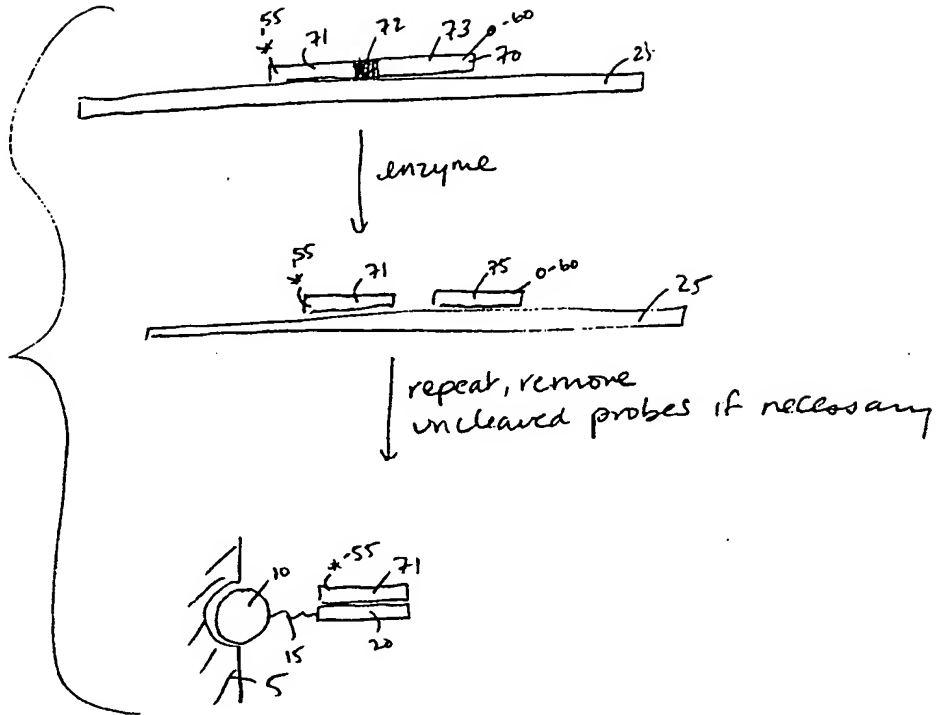 55 71 72 73 0-60
* 70 25
enzyme
55 71 75 0-60
* 25
repeat, remove
uncleaved probes if necessary
10 *-55 71
15 20
5